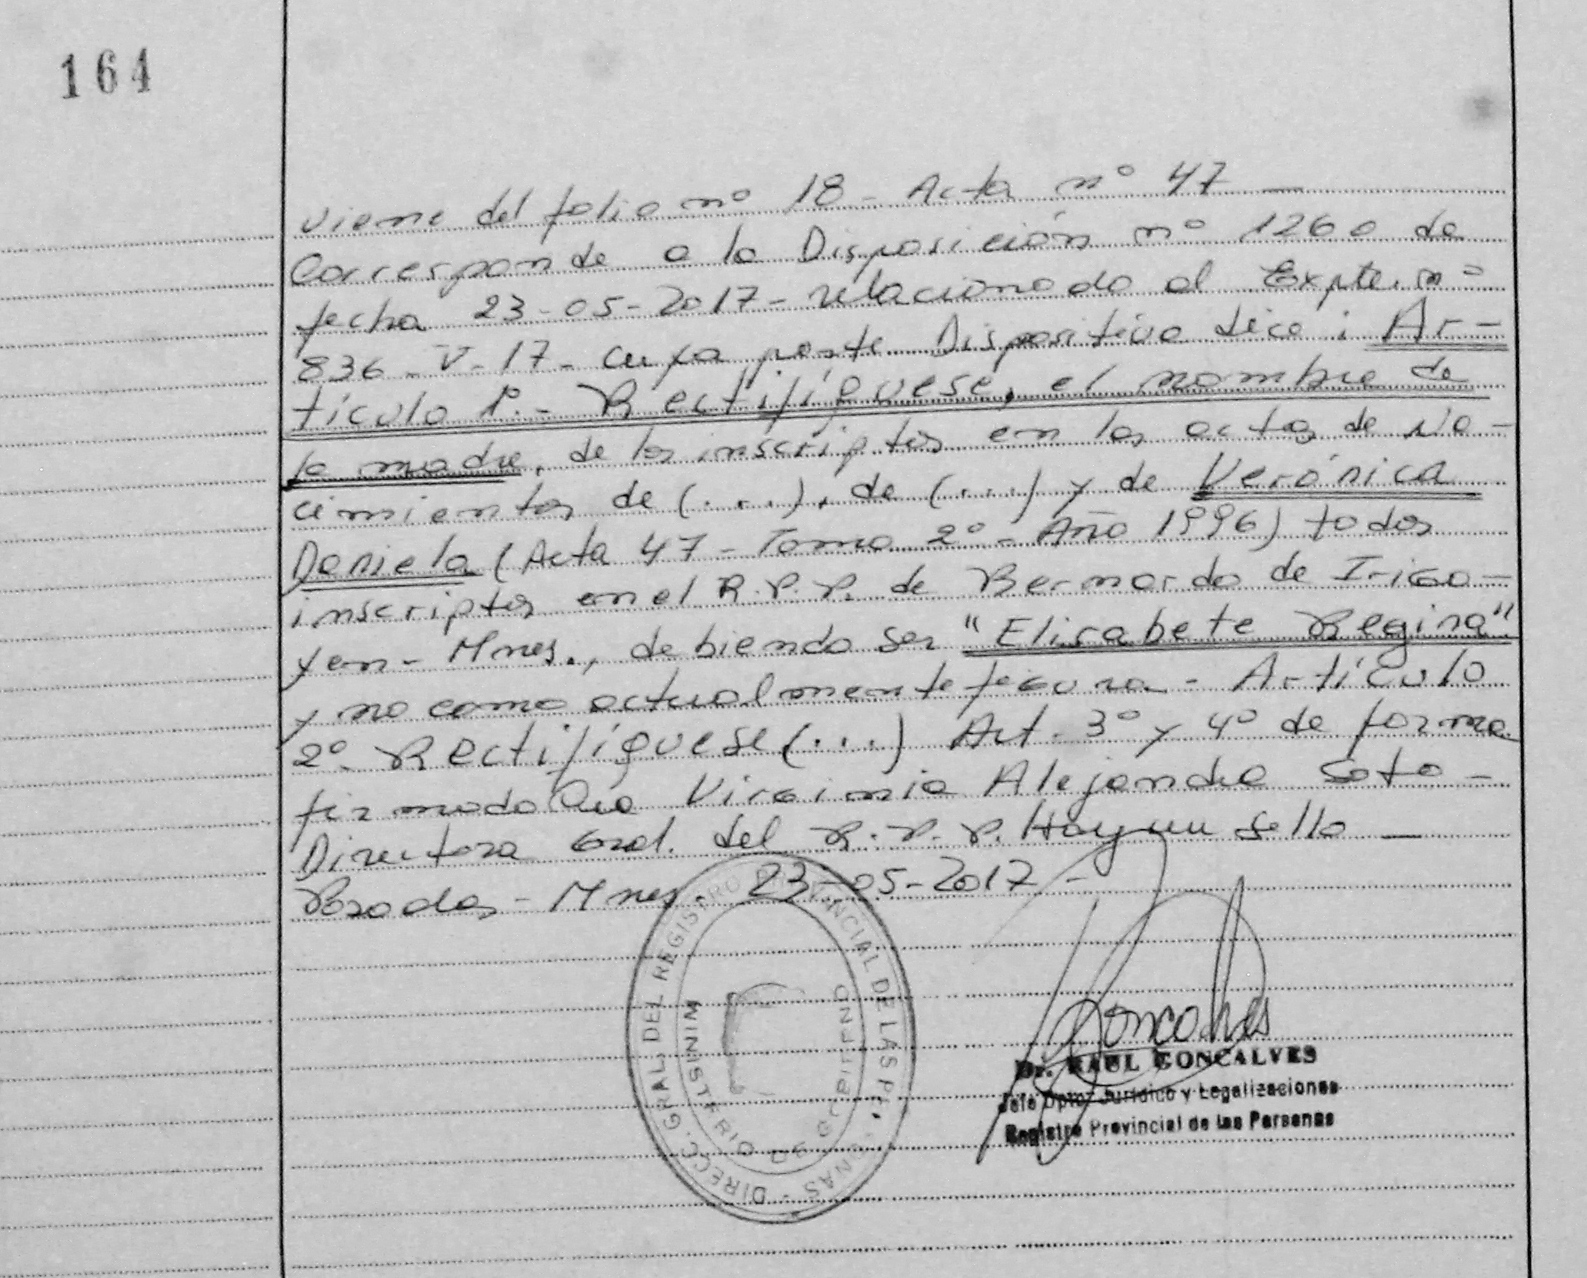 164
Viene del folio nº 18 - Acta nº 47 —
Corresponde a la Disposición nº 1260 de
fecha 23-05-2017 - relacionado al Expte. nº
836-V-17- cuya parte Dispositiva dice: Ar-
tículo 1º.- Rectifíquese, el nombre de
la madre, de los inscriptos en las actas de Na-
cimientos de (...), de (...) y de Verónica
Daniela (Acta 47 - Tomo 2º - Año 1996) todos
inscriptos en el R.P.P. de Bernardo de Irigo-
yen - Mnes., debiendo ser "Elisabete Regina"
y no como actualmente figura - Artículo
2º- Rectifíquese (...) Art. 3º y 4º de forma
firmado Dra Virginia Alejandra Soto -
Directora Gral. del R.P.P. Hay un sello —
Posadas - Mnes. 23-05-2017 -
DIRECC. GRAL. DEL REGISTRO PROVINCIAL DE LAS PERSONAS
MINISTERIO DE GOBIERNO
Goncalves
Dr. RAUL GONCALVES
Jefe Dpto. Jurídico y Legalizaciones
Registro Provincial de las Personas